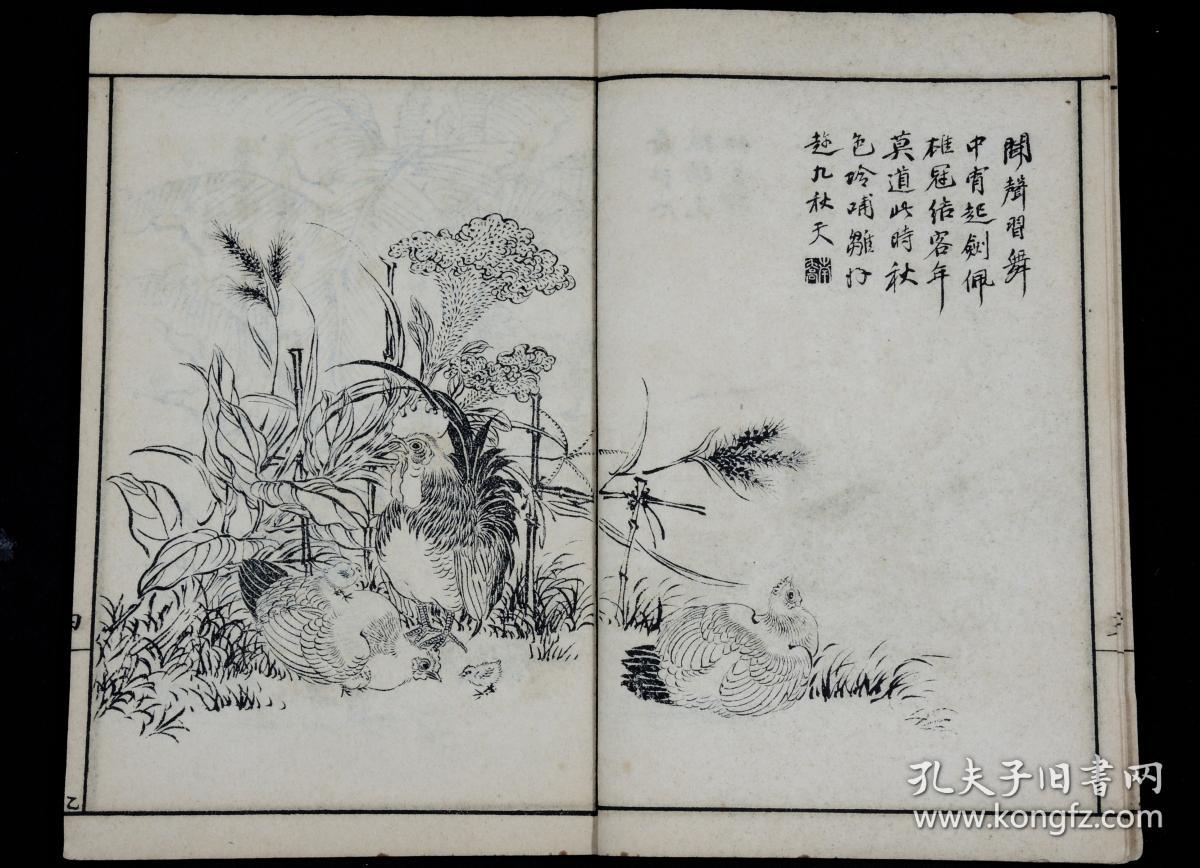 聞聲習舞
中宵起劍佩
雄冠結客年
莫道此時秋
色冷哺雛好
趁九秋天
孔夫子旧書网
www.kongfz.com